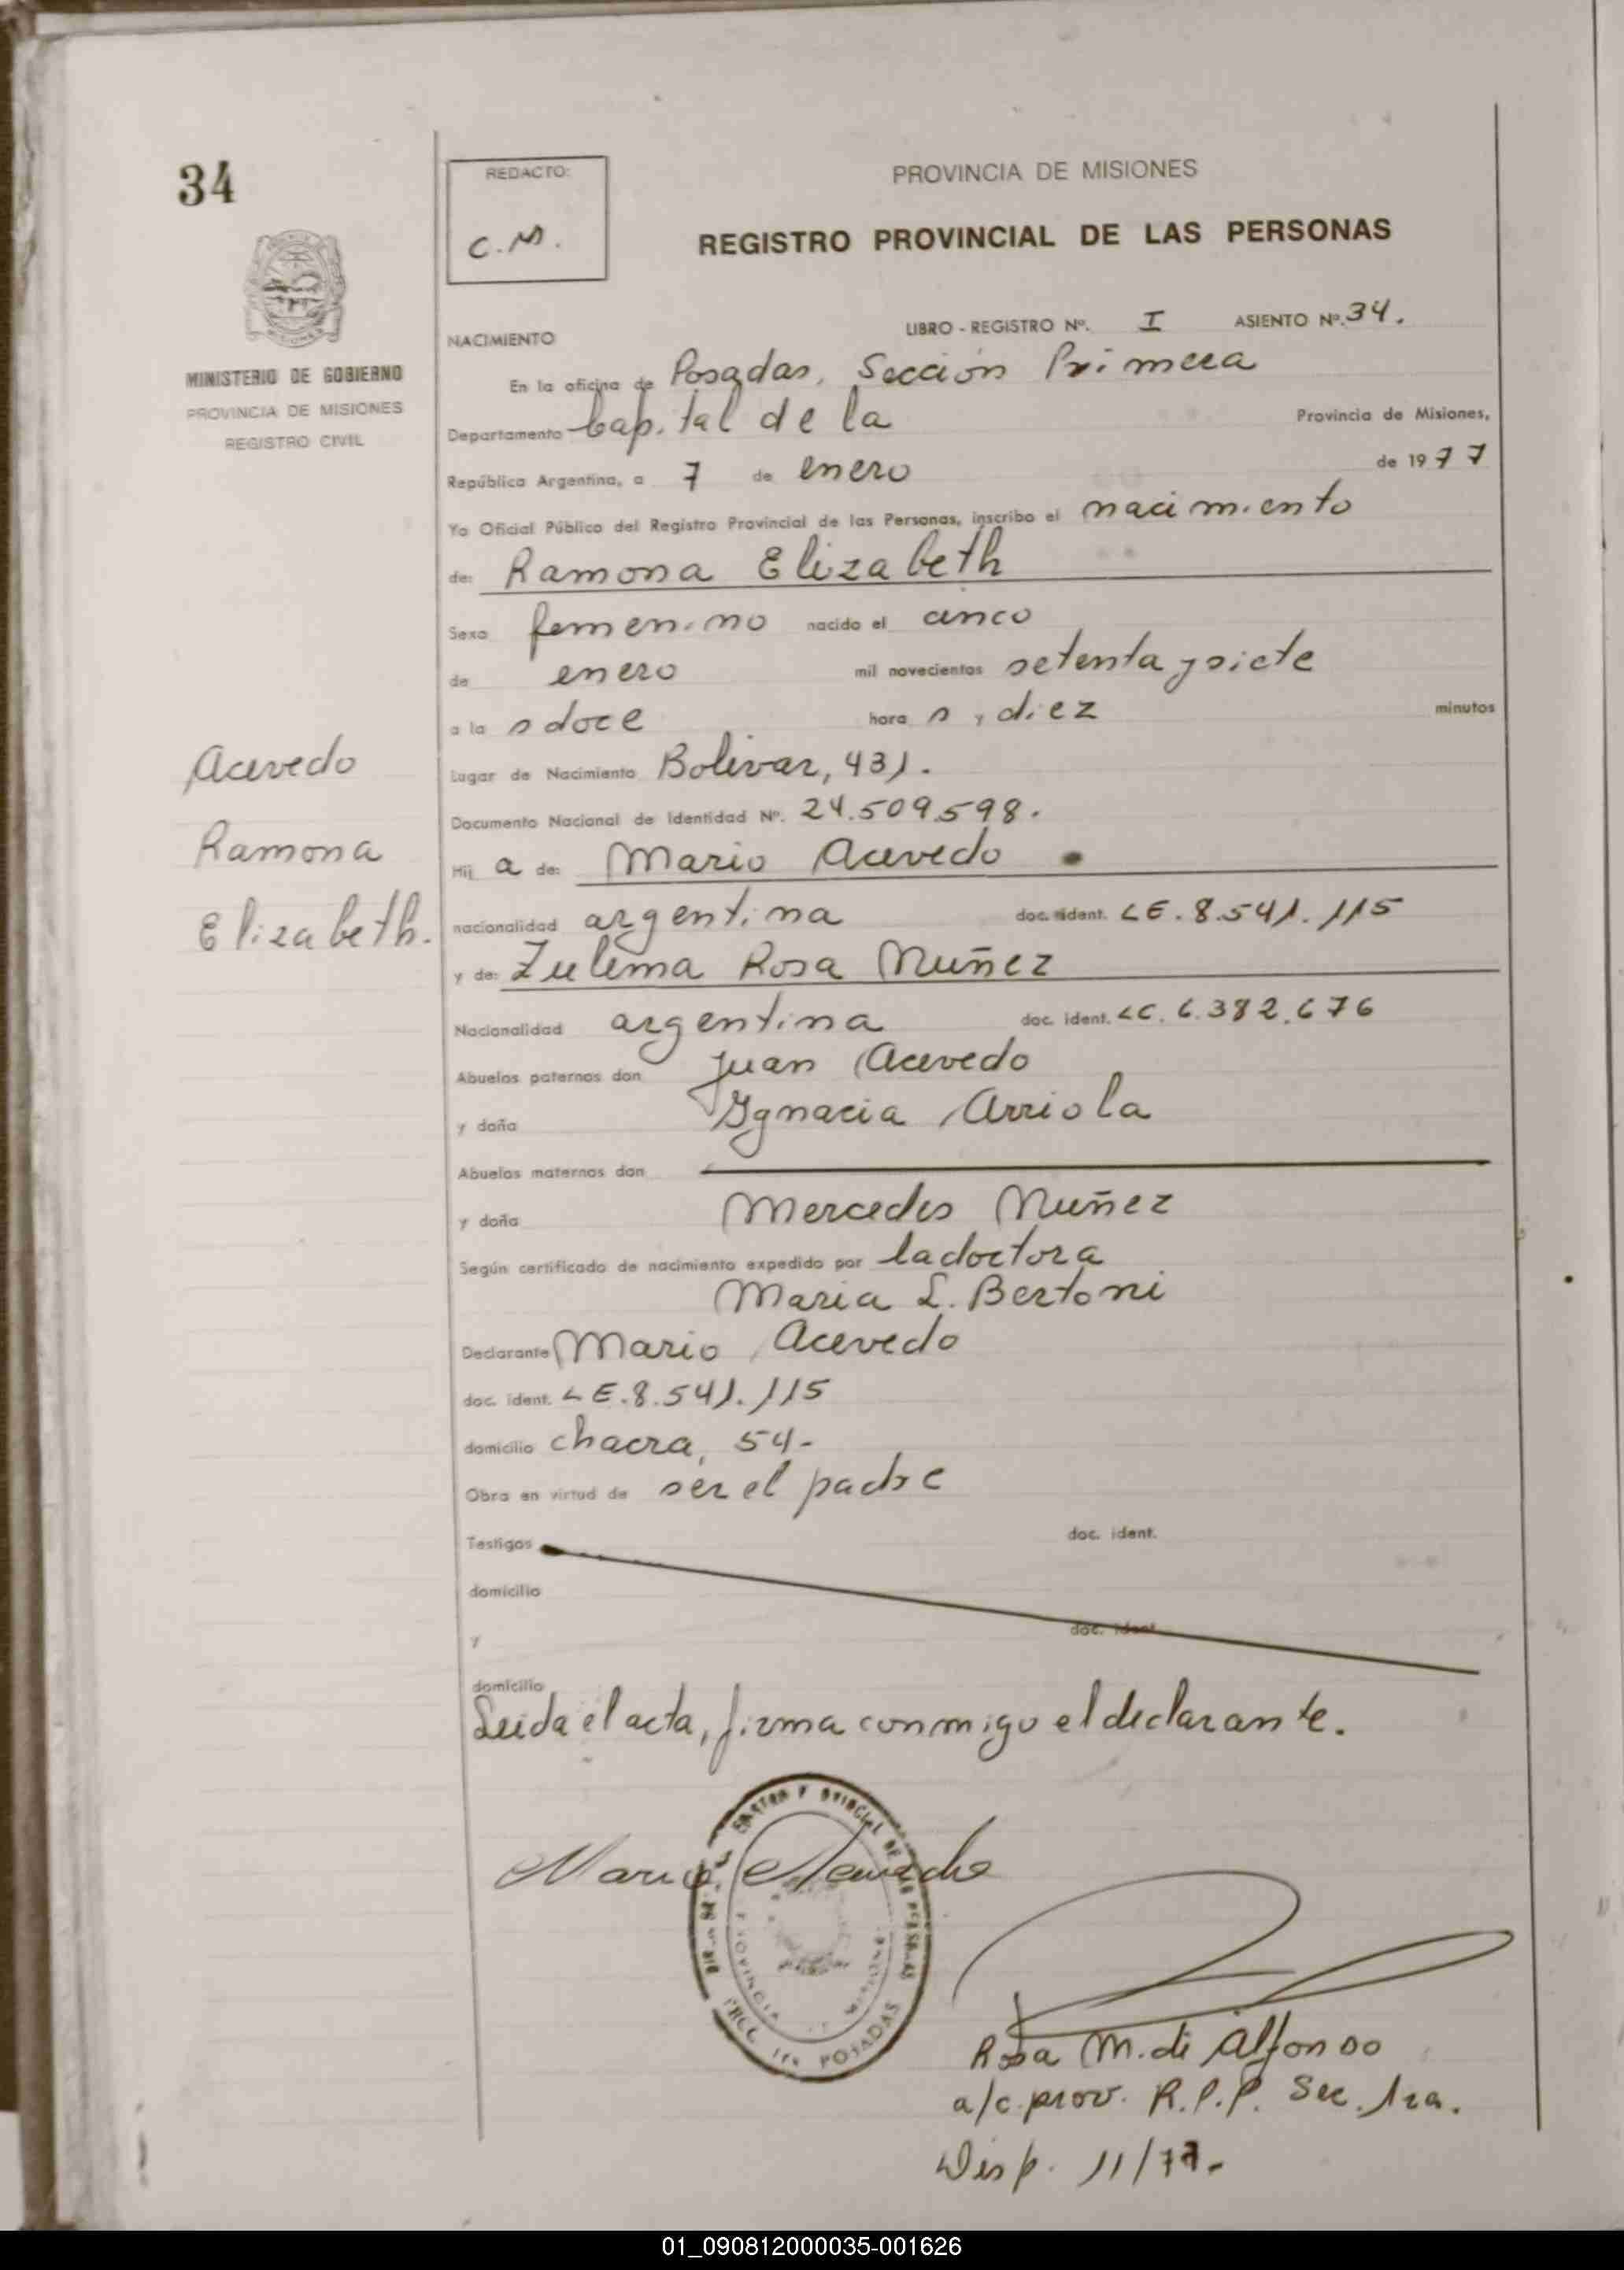 34
REDACTO:
C.M.
PROVINCIA DE MISIONES
REGISTRO PROVINCIAL DE LAS PERSONAS
MINISTERIO DE GOBIERNO
PROVINCIA DE MISIONES
REGISTRO CIVIL
LIBRO - REGISTRO Nº. I ASIENTO Nº. 34.
NACIMIENTO
En la oficina de Posadas, Sección Primera
Departamento Capital de la Provincia de Misiones,
República Argentina, a 7 de enero de 1977
Yo Oficial Público del Registro Provincial de las Personas, inscribo el nacimiento
de: Ramona Elizabeth
Sexo femenino nacido el cinco
de enero mil novecientos setenta y siete
a la s doce hora s y diez minutos
Lugar de Nacimiento Bolivar, 431.
Documento Nacional de Identidad Nº. 24.509.598.
Acevedo
Ramona
Elizabeth.
Hij a de: Mario Acevedo
nacionalidad argentina doc. ident. LE. 8.541.115
y de: Zulema Rosa Muñez
Nacionalidad argentina doc. ident. LC. 6.382.676
Abuelos paternos don Juan Acevedo
y doña Ygnacia Arriola
Abuelos maternos don
y doña Mercedes Muñez
Según certificado de nacimiento expedido por la doctora
Maria L. Bertoni
Declarante Mario Acevedo
doc. ident. LE. 8.541.115
domicilio chacra, 54-
Obra en virtud de ser el padre
Testigos doc. ident.
domicilio
y doc. ident.
domicilio
Leida el acta, firma conmigo el declarante.
Mario Acevedo
POSADAS
Rosa M. di Alfonso
a/c. prov. R.P.P. Sec. 1ra.
Disp. 11/77.
01_090812000035-001626